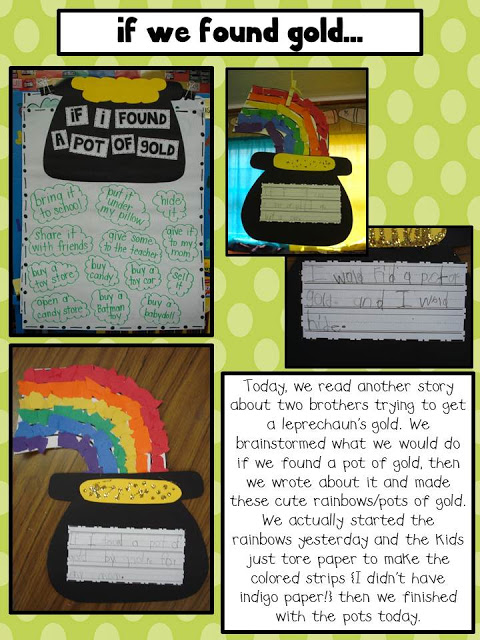 if we found gold...
IF I FOUND
A POT OF GOLD
bring it
to school!
put it
under
my pillow.
hide
it
share it
with friends
give some
to the teacher
give it
to my
mom
buy a
toy store
buy
candy
buy a
toy car
sell
it
open a
candy store
buy a
Batman
toy
buy a
babydoll
I wold fid a pot of
gold. and I wold
hide.
Today, we read another story
about two brothers trying to get
a leprechaun's gold. We
brainstormed what we would do
if we found a pot of gold, then
we wrote about it and made
these cute rainbows/pots of gold.
We actually started the
rainbows yesterday and the kids
just tore paper to make the
colored strips {I didn't have
indigo paper!} then we finished
with the pots today.